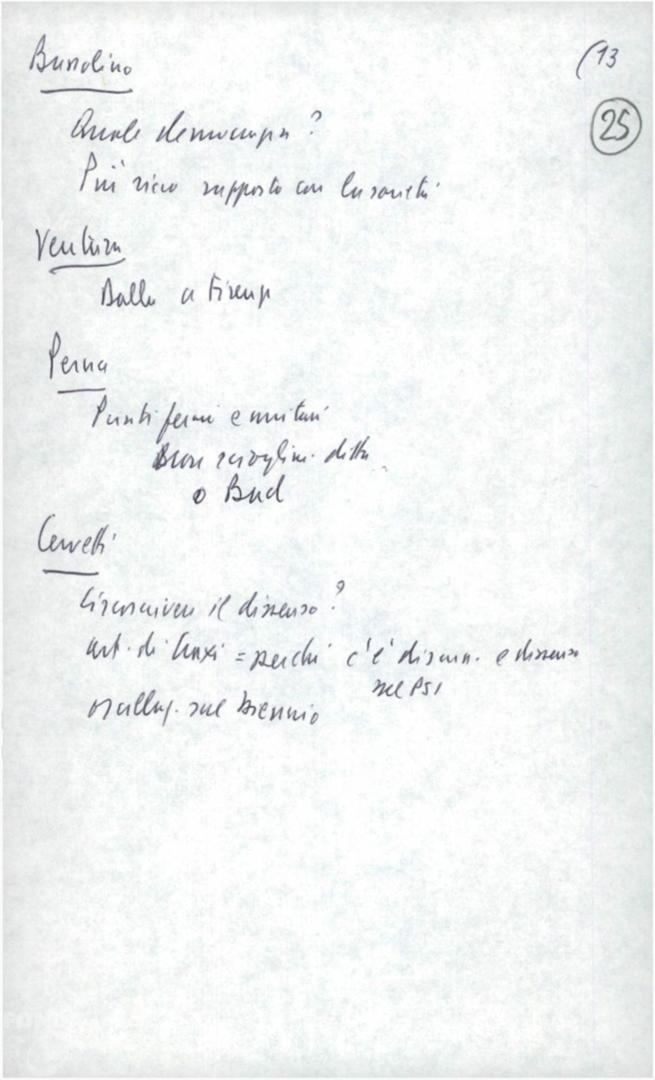 Bassolino
(13
25
Quale democrazia?
Più ricco rapporto con la società
Ventura
Balle a Firenze
Perna
Punti fermi e unitari
o Bud
Cervetti
Circoscrivere il dissenso?
art. di Craxi = perché c'è discuss. e dissenso
nel PSI
sul biennio